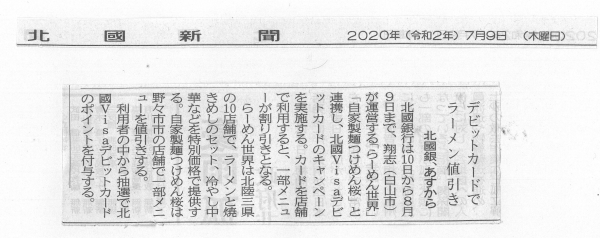 北國新聞 2020年(令和2年)7月9日 (木曜日)
デビットカードで
ラーメン値引き
北國銀、あすから
北國銀行は10日から8月
9日まで、翔志(白山市)
が運営する「らーめん世界」
「自家製麺つけめん桜」と
連携し、北國Visaデビ
ットカードのキャンペーン
を実施する。カードを店舗
で利用すると、一部メニュ
ーが割り引きとなる。
らーめん世界は北陸三県
の10店舗で、ラーメンと焼
きめしのセット、冷やし中
華などを特別価格で提供す
る。自家製麺つけめん桜は
野々市市の店舗で一部メニ
ューを値引きする。
利用者の中から抽選で北
國Visaデビットカード
のポイントを付与する。